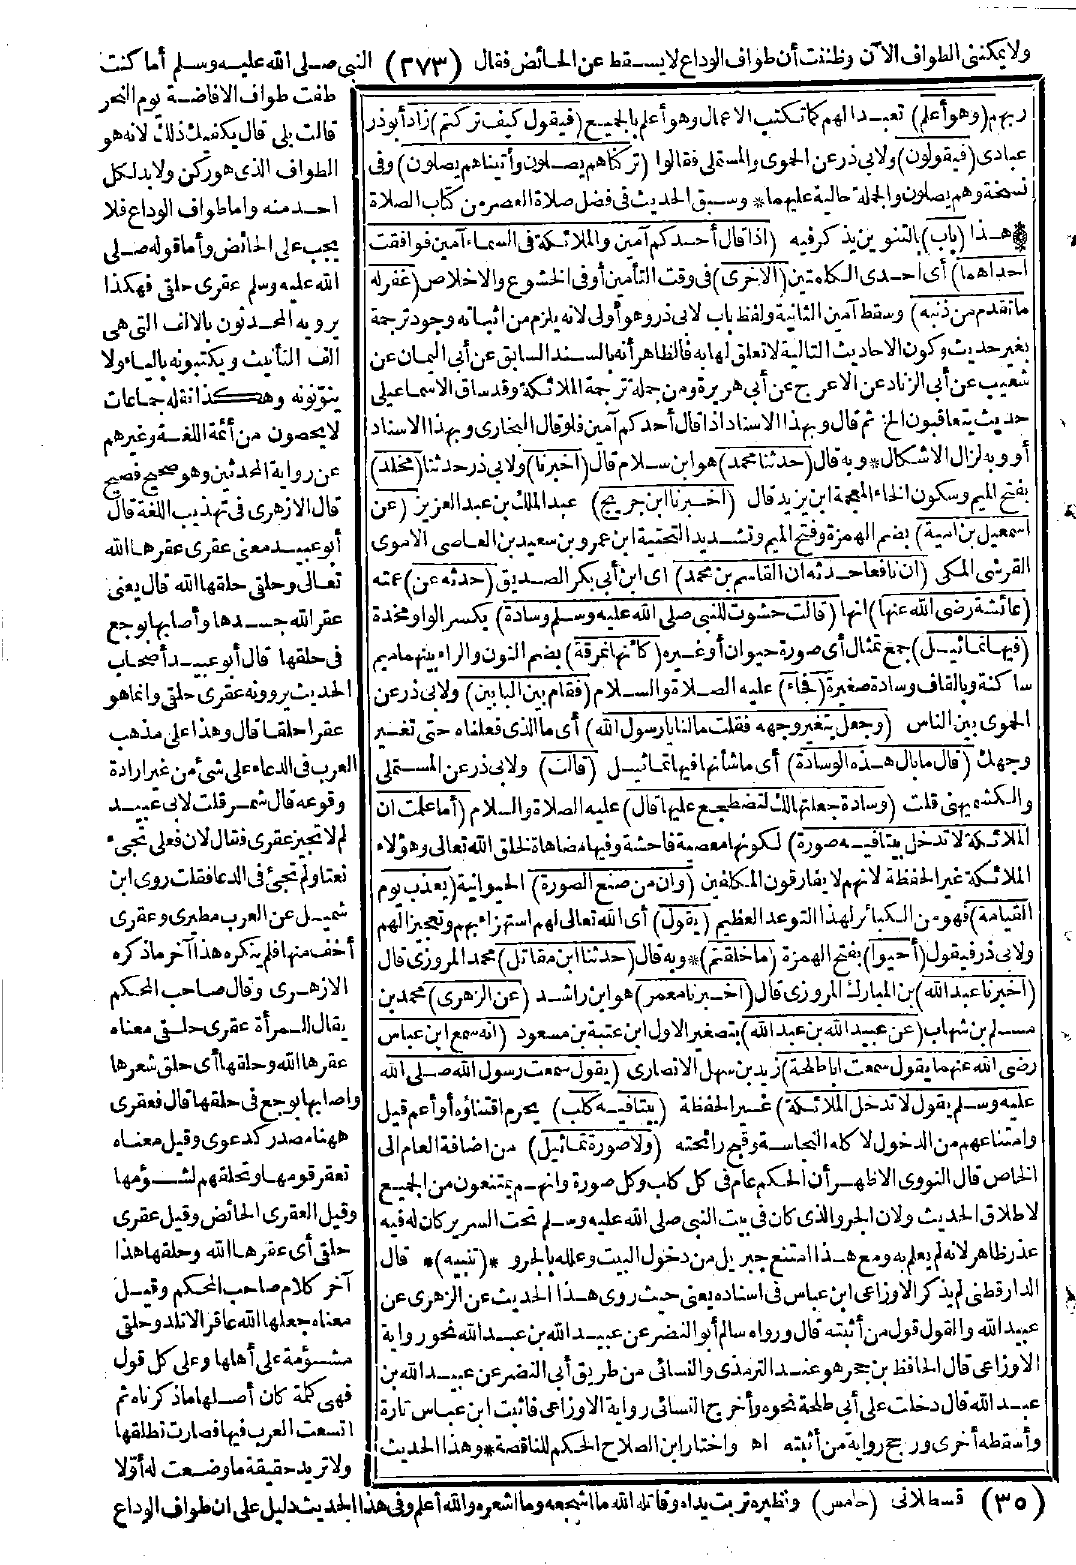 ولا يمكننى الطواف الآن وظننت أن طواف الوداع لا يسقط عن الحائض فقال (٢٧٣) النبي صلى الله عليه وسلم أما كنت
طفت طواف الافاضة يوم النحر
قالت بلى قال يكفيك ذلك لانه هو
الطواف الذى هو ركن ولا بد لكل
احد منه واما طواف الوداع فلا
يجب على الحائض وأما قوله صلى
الله عليه وسلم عقرى حلقى فهكذا
يرويه المحدثون بالالف التى هى
الف التأنيث ويكتبونه بالياء ولا
ينونونه وهكذا نقله جماعات
لا يحصون من أئمة اللغة وغيرهم
عن رواية المحدثين وهو صحيح فصيح
قال الازهرى فى تهذيب اللغة قال
أبو عبيد معنى عقرى عقرها الله
تعالى وحلقى حلقها الله قال يعنى
عقر الله جسدها وأصابها بوجع
فى حلقها قال أبو عبيد أصحاب
الحديث يروونه عقرى حلقى وانما هو
عقرا حلقا قال وهذا على مذهب
العرب فى الدعاء على شئ من غير ارادة
وقوعه قال شمر قلت لابى عبيد
لم لا تجيز عقرى فقال لان فعلى تجىء
نعتا ولم تجئ فى الدعا فقلت روى ابن
شميل عن العرب مطيرى وعقرى
أخف منها فلم ينكره هذا آخر ما ذكره
الازهرى وقال صاحب المحكم
يقال للمرأة عقرى حلقى معناه
عقرها الله وحلقها أى حلق شعرها
واصابها بوجع فى حلقها قال فعقرى
ههنا مصدر كدعوى وقيل معناه
تعقر قومها وتحلقهم لشؤمها
وقيل العقرى الحائض وقيل عقرى
حلقى أى عقرها الله وحلقها هذا
آخر كلام صاحب المحكم وقيل
معناه جعلها الله عاقر الاتلد وحلقى
مشؤمة على أهلها وعلى كل قول
فهى كلمة كان أصلها ما ذكرناه ثم
اتسعت العرب فيها فصارت تطلقها
ولا تريد حقيقة ما وضعت له أولا
ربهم (وهو أعلم) تعبدا لهم كما تكتب الاعمال وهو أعلم بالجميع (فيقول كيف تركتم) زاد أبو ذر
عبادى (فيقولون) ولابى ذر عن الحموى والمستملى فقالوا (تركناهم يصلون وأتيناهم يصلون) وفى
نسخة وهم يصلون والجملة حالية عليهما * وسبق الحديث فى فضل صلاة العصر من كتاب الصلاة
* هذا (باب) بالتنوين يذكر فيه (اذا قال أحدكم آمين والملائكة فى السماء آمين فوافقت
احداهما) أى احدى الكلمتين (الاخرى) فى وقت التأمين أو فى الخشوع والاخلاص (غفر له
ما تقدم من ذنبه) وسقط آمين الثانية ولفظ باب لابى ذر وهو أولى لانه يلزم من اثباته وجود ترجمة
بغير حديث وكون الاحاديث التالية لا تعلق لها به فالظاهر أنه بالسند السابق عن أبى اليمان عن
شعيب عن أبى الزناد عن الاعرج عن أبى هريرة ومن جملة ترجمة الملائكة وقد ساق الاسماعيلى
حديث يتعاقبون الخ ثم قال وبهذا الاسناد اذا قال أحدكم آمين فلو قال البخارى وبهذا الاسناد
أو وبه لزال الاشكال * وبه قال (حدثنا محمد) هو ابن سلام قال (أخبرنا) ولابى ذر حدثنا (مخلد)
بفتح الميم وسكون الخاء المعجمة ابن يزيد قال (أخبرنا ابن جريج) عبد الملك بن عبد العزيز (عن
اسمعيل بن امية) بضم الهمزة وفتح الميم وتشديد التحتية ابن عمرو بن سعيد بن العاصى الاموى
القرشى المكى (ان نافعا حدثه ان القاسم بن محمد) اى ابن أبى بكر الصديق (حدثه عن) عمته
(عائشة رضى الله عنها) انها (قالت حشوت للنبى صلى الله عليه وسلم وسادة) بكسر الواو مخدة
(فيها تماثيل) جمع تمثال أى صورة حيوان أو غيره (كأنها نمرقة) بضم النون والراء بينهما ميم
ساكنة وبالقاف وسادة صغيرة (فجاء) عليه الصلاة والسلام (فقام بين البابين) ولابى ذر عن
الحموى بين الناس (وجعل يتغير وجهه فقلت ما لنا يا رسول الله) أى ما الذى فعلناه حتى تغير
وجهك (قال ما بال هذه الوسادة) أى ما شأنها فيها تماثيل (قالت) ولابى ذر عن المستملى
والكشميهنى قلت (وسادة جعلتها لك لتضطجع عليها قال) عليه الصلاة والسلام (أما علمت ان
الملائكة لا تدخل بيتا فيه صورة) لكونها معصية فاحشة وفيها مضاهاة لخلق الله تعالى وهؤلاء
الملائكة غير الحفظة لانهم لا يفارقون المكلفين (وان من صنع الصورة) الحيوانية (يعذب يوم
القيامة) فهو من الكبائر لهذا التوعد العظيم (يقول) أى الله تعالى لهم استهزاء بهم وتعجيزا لهم
ولابى ذر فيقول (أحيوا) بفتح الهمزة (ما خلقتم) * وبه قال (حدثنا ابن مقاتل) محمد المروزى قال
(أخبرنا عبد الله) بن المبارك المروزى قال (اخبرنا معمر) هو ابن راشد (عن الزهرى) محمد بن
مسلم بن شهاب (عن عبيد الله بن عبد الله) بتصغير الاول ابن عتبة بن مسعود (انه سمع ابن عباس
رضى الله عنهما يقول سمعت ابا طلحة) زيد بن سهل الانصارى (يقول سمعت رسول الله صلى الله
عليه وسلم يقول لا تدخل الملائكة) غير الحفظة (بيتا فيه كلب) يحرم اقتناؤه أو أعم قيل
وامتناعهم من الدخول لاكله النجاسة وقبح رائحته (ولا صورة تماثيل) من اضافة العام الى
الخاص قال النووى الاظهر أن الحكم عام فى كل كلب وكل صورة وانهم يمتنعون من الجميع
لاطلاق الحديث ولان الجرو الذى كان فى بيت النبى صلى الله عليه وسلم تحت السرير كان له فيه
عذر ظاهر لانه لم يعلم به ومع هذا امتنع جبريل من دخول البيت وعلله بالجرو * (تنبيه) * قال
الدارقطنى لم يذكر الاوزاعى ابن عباس فى اسناده يعنى حيث روى هذا الحديث عن الزهرى عن
عبيد الله والقول قول من أثبته قال ورواه سالم أبو النضر عن عبيد الله بن عبد الله نحو رواية
الاوزاعى قال الحافظ بن حجر هو عند الترمذى والنسائى من طريق أبى النضر عن عبيد الله بن
عبد الله قال دخلت على أبى طلحة نحوه وأخرج النسائى رواية الاوزاعى فاثبت ابن عباس تارة
وأسقطه أخرى ورجح رواية من أثبته اه واختار ابن الصلاح الحكم للناقصة * وهذا الحديث
(٣٥) قسطلانى (خامس) ونظيره تربت يداه وقاتله الله ما اشجعه وما اشعره والله أعلم وفى هذا الحديث دليل على ان طواف الوداع